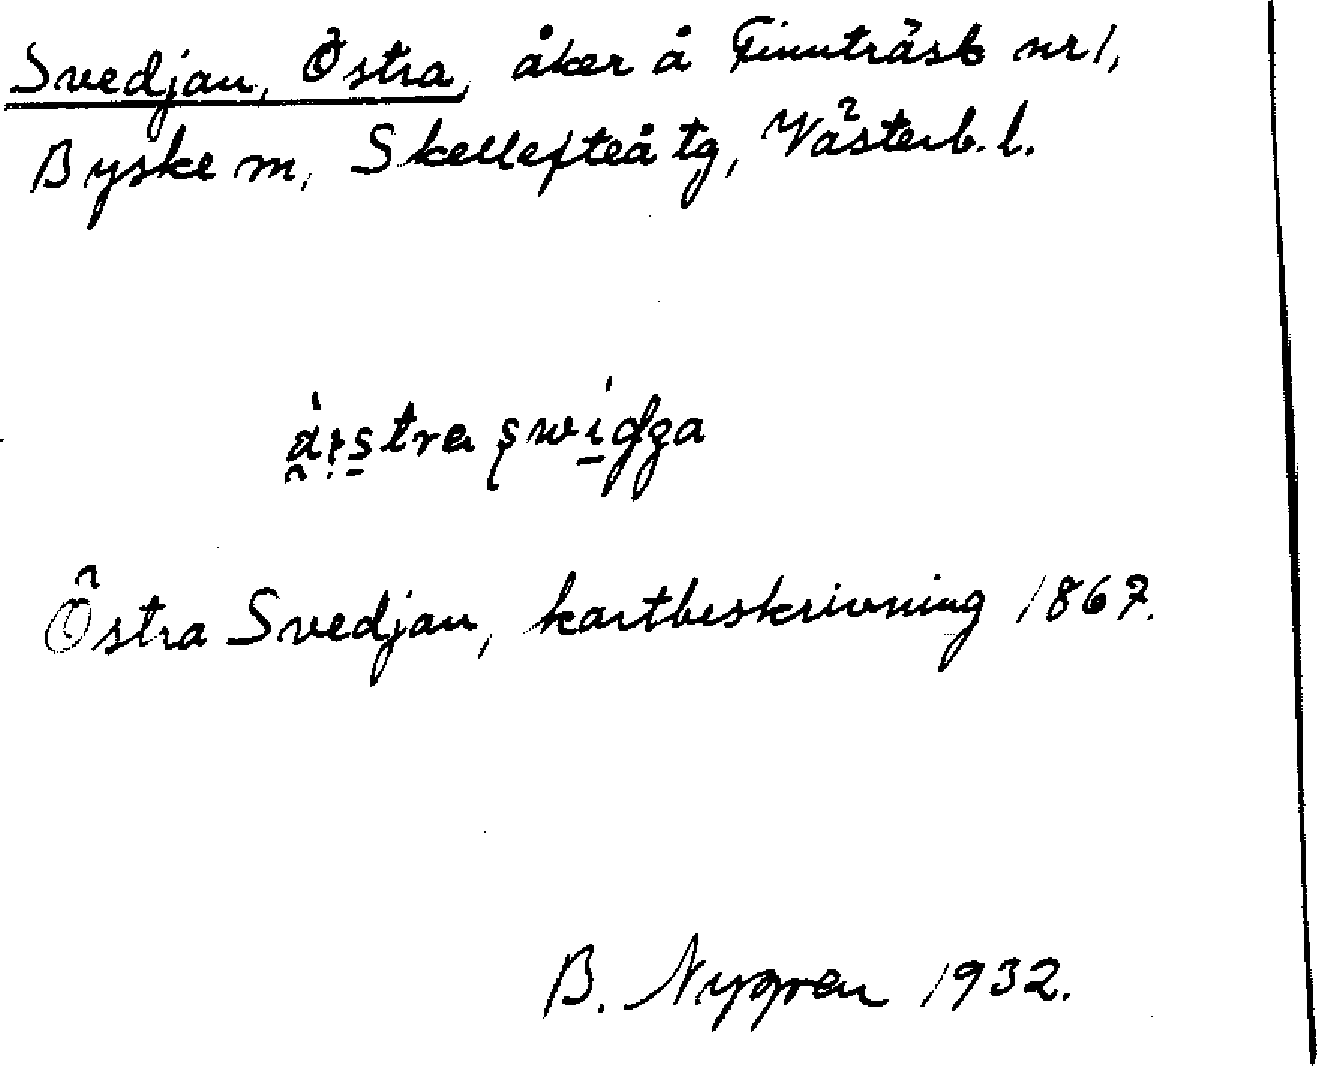 Svedjan, Östra, åker å Finnträsk nr 1,
Byske m, Skellefteå tg, Västerb. l.
Östra Svedjan, kartbeskrivning 1867.
B. Nygren 1932.